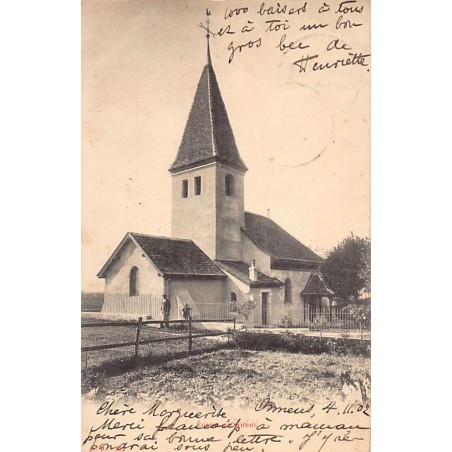 1000 baisers à tous
et à toi un bon
gros bec de
Henriette.
Chère Marguerite
Ornens, 4.11.02
Merci beaucoup à maman
pour sa bonne lettre. J'y ré-
pondrai sous peu.